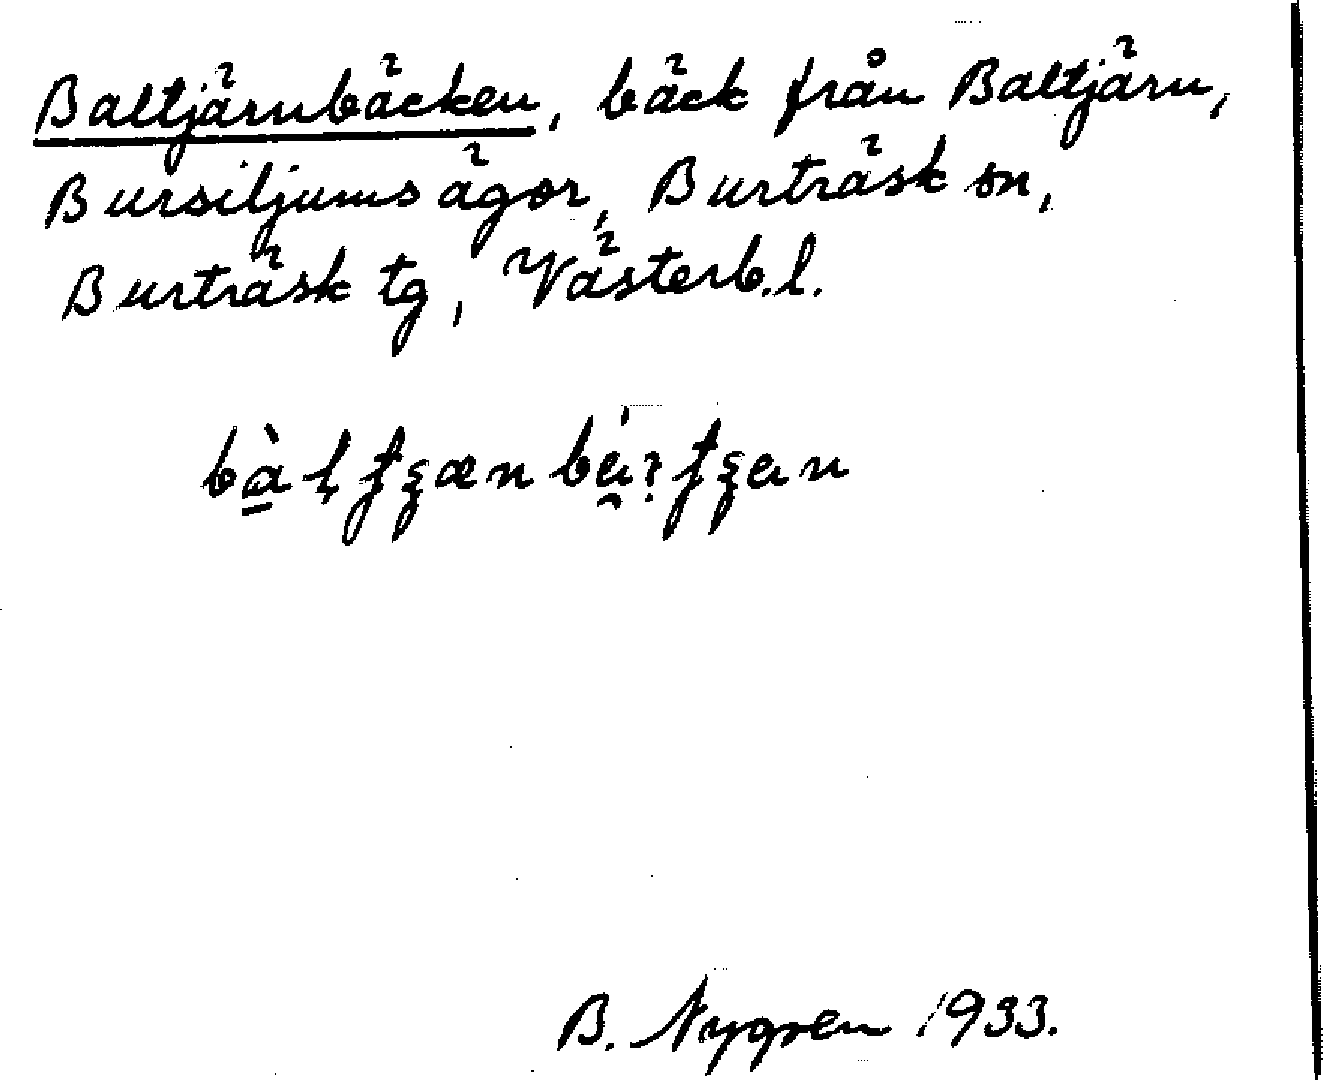 Baltjärnbäcken, bäck från Baltjärn,
Bursiljums ägor, Burträsk sn,
Burträsk tg, Västerb.l.
B. Nygren 1933.